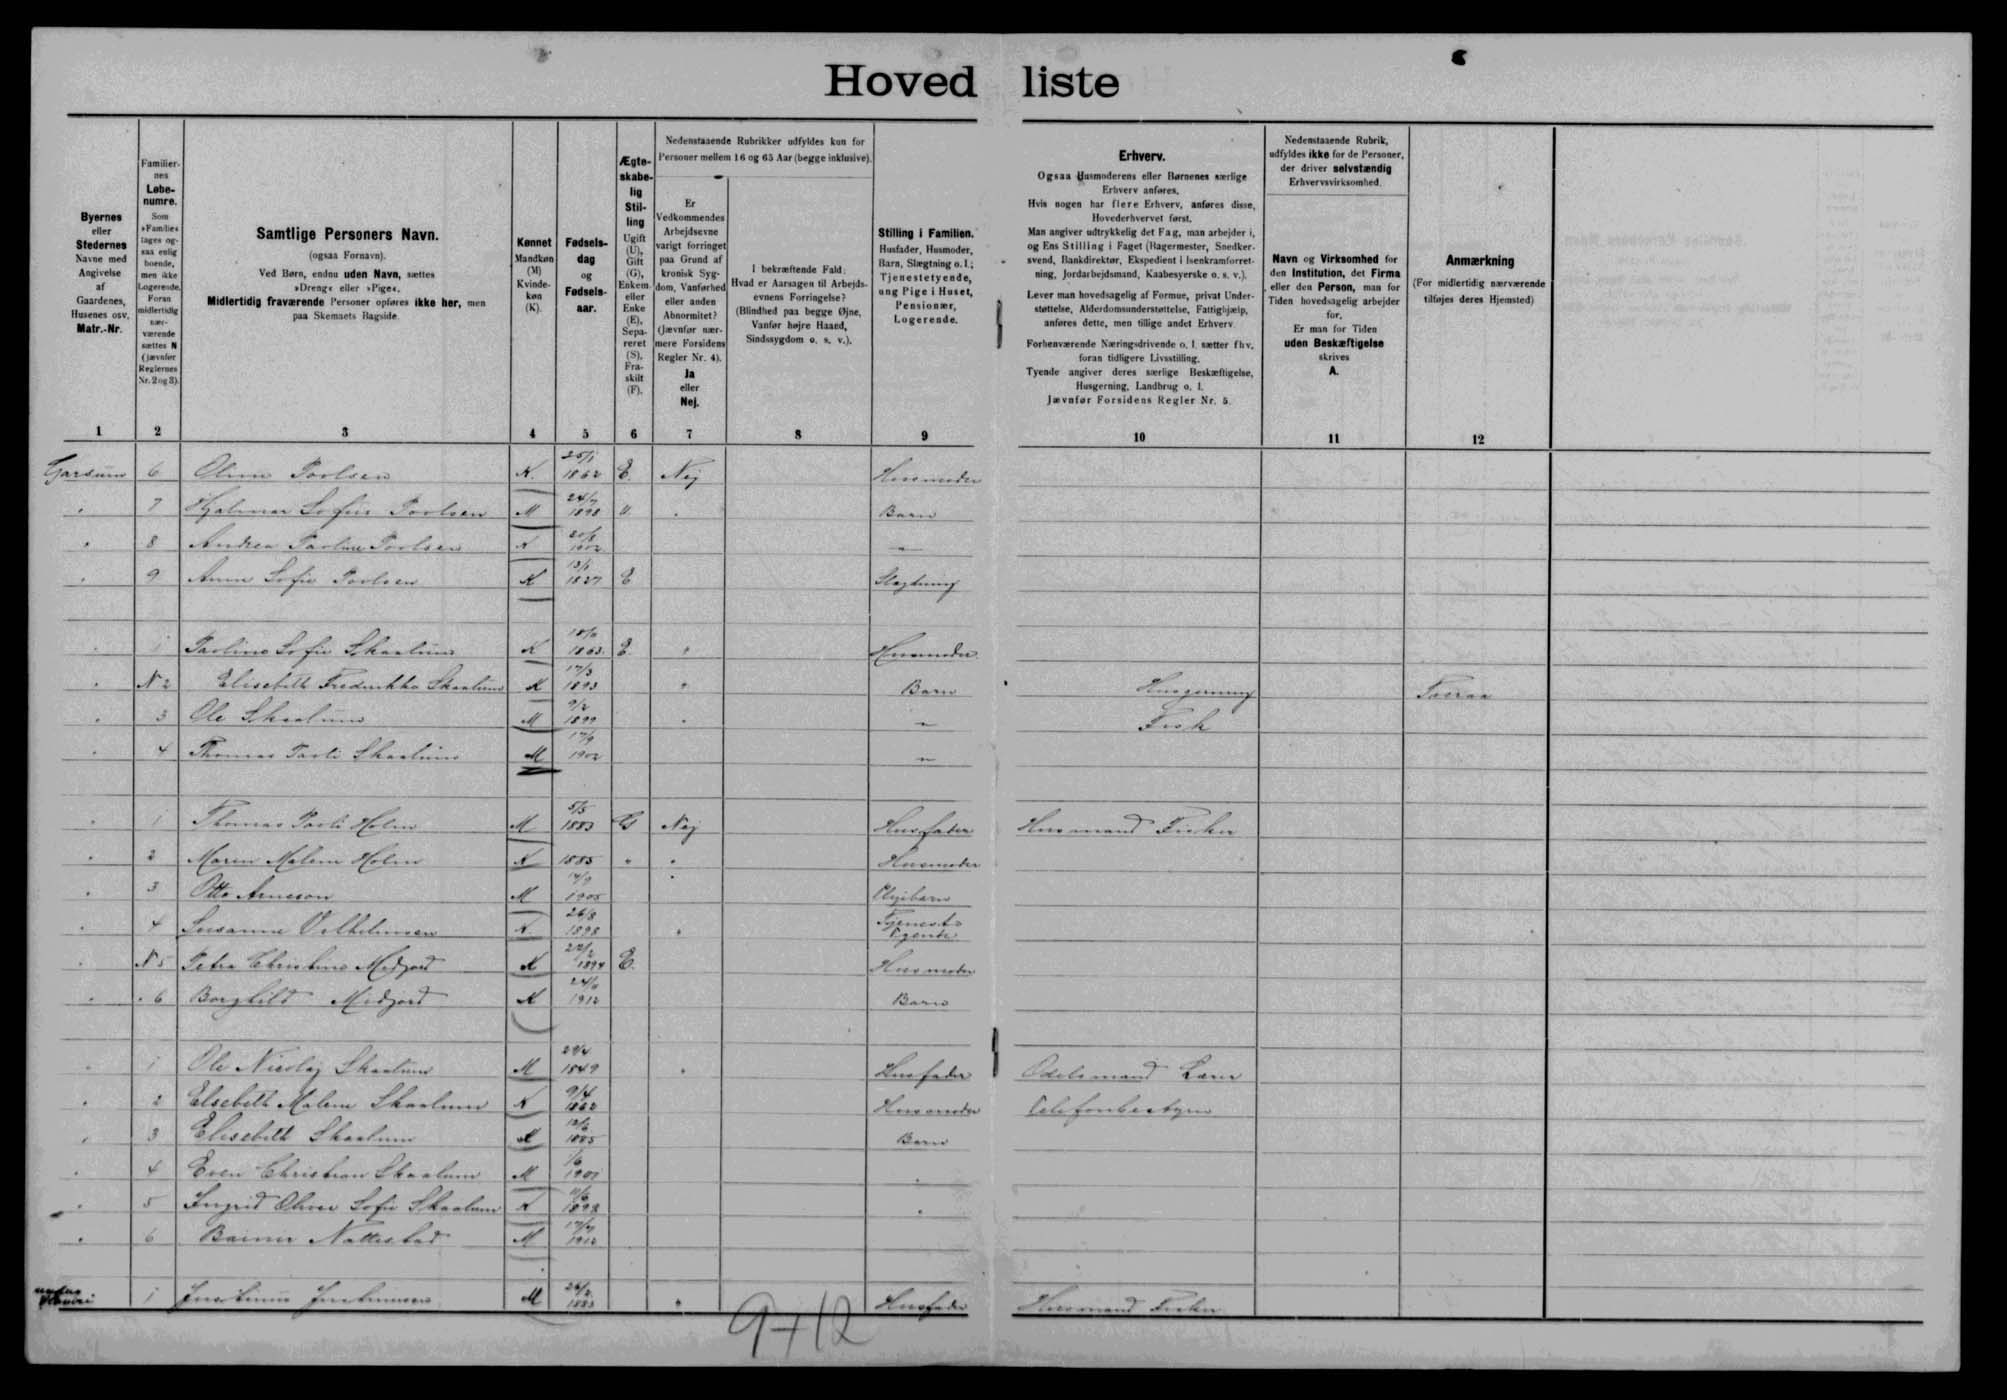 Hoved liste
Byernes
eller
Stedernes
Navne med
Angivelse
af
Gaardenes,
Husenes osv.
Matr.-Nr.
Familier-
nes
Løbe-
numre.
Som
»Familie«
tages og-
saa enlig
boende,
men ikke
Logerende.
Foran
midlertidig
nær-
værende
sættes N
(jævnfør
Reglernes
Nr. 2 og 3).
Samtlige Personers Navn.
(ogsaa Fornavn).
Ved Børn, endnu uden Navn, sættes
»Dreng« eller »Pige«.
Midlertidig fraværende Personer opføres ikke her, men
paa Skemaets Bagside.
Kønnet
Mandkøn
(M)
Kvinde-
køn
(K).
Fødsels-
dag
og
Fødsels-
aar.
Ægte-
skabe-
lig
Stil-
ling
Ugift
(U),
Gift
(G),
Enkem.
eller
Enke
(E),
Sepa-
reret
(S),
Fra-
skilt
(F).
Nedenstaaende Rubrikker udfyldes kun for
Personer mellem 16 og 65 Aar (begge inklusive).
Er
Vedkommendes
Arbejdsevne
varigt forringet
paa Grund af
kronisk Syg-
dom, Vanførhed
eller anden
Abnormitet?
(Jævnfør nær-
mere Forsidens
Regler Nr. 4).
Ja
eller
Nej.
I bekræftende Fald:
Hvad er Aarsagen til Arbejds-
evnens Forringelse?
(Blindhed paa begge Øjne,
Vanfør højre Haand,
Sindssygdom o. s. v.).
Stilling i Familien.
Husfader, Husmoder,
Barn, Slægtning o. l.;
Tjenestetyende,
ung Pige i Huset,
Pensionær,
Logerende.
Erhverv.
Ogsaa Husmoderens eller Børnenes særlige
Erhverv anføres.
Hvis nogen har flere Erhverv, anføres disse,
Hovederhvervet først.
Man angiver udtrykkelig det Fag, man arbejder i,
og Ens Stilling i Faget (Bagermester, Snedker-
svend, Bankdirektør, Ekspedient i Isenkramforret-
ning, Jordarbejdsmand, Kaabesyerske o. s. v.).
Lever man hovedsagelig af Formue, privat Under-
støttelse, Alderdomsunderstøttelse, Fattighjælp,
anføres dette, men tillige andet Erhverv.
Forhenværende Næringsdrivende o. l. sætter fhv.
foran tidligere Livsstilling.
Tyende angiver deres særlige Beskæftigelse,
Husgerning, Landbrug o. l.
Jævnfør Forsidens Regler Nr. 5.
Nedenstaaende Rubrik,
udfyldes ikke for de Personer,
der driver selvstændig
Erhvervsvirksomhed.
Navn og Virksomhed for
den Institution, det Firma
eller den Person, man for
Tiden hovedsagelig arbejder
for.
Er man for Tiden
uden Beskæftigelse
skrives
A.
Anmærkning
(For midlertidig nærværende
tilføjes deres Hjemsted)
1 2 3 4 5 6 7 8 9 10 11 12
6 Poulsen K. 1862 E. Nej Husmoder
7 Hjalmar Sofus Poulsen M 24/7 1898 U. " Barn
8 Andrea Pauline Poulsen K 1902 "
9 Anna Sofie Poulsen K 1827 E Slægtning
1 Pauline Sofie Skaalum K 1863 E. " Husmoder
N 2 Elisebeth Fredrikka Skaalum K 17/3 1893 " Barn Husgerning
3 Ole Skaalum M 9/2 1899 " " Fisk
4 Thomas Pauli Skaalum M 17/9 1902 "
1 Thomas Pauli Holm M 5/5 1883 G Nej Husfader Husmand Fisker
2 Maren Malene Holm K 1885 " " Husmoder
3 Otto Arneson M 1905 " Plejebarn
4 Susanne Vilhelmsen K 26/8 1898 " Tjeneste
N 5 Petra Christine Midjord K 1894 E. Husmoder
" 6 Borghild Midjord K 1912 Barn
1 Ole Nicolaj Skaalum M 1849 " Husfader Odelsmand
2 Elsebeth Malene Skaalum K 9/4 1862 Husmoder Telefonbestyrer
3 Elisebeth Skaalum K 1885 Barn
4 Even Christian Skaalum M 1/6 "
5 Ingrid Sofie Skaalum K 1898 "
6 Nattestad M 17/7 1912
1 M 1883 " Husfader Husmand Fisker
9+12